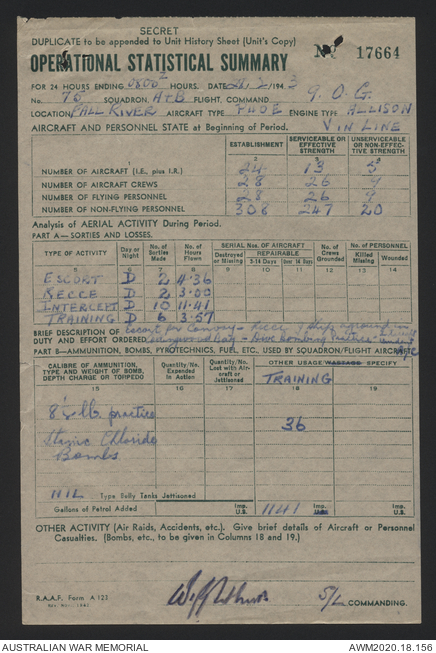 SECRET
DUPLICATE to be appended to Unit History Sheet (Unit's Copy)
OPERATIONAL STATISTICAL SUMMARY
17664
FOR 24 HOURS ENDING 0800Z HOURS. DATE 2/194
No. 75 SQUADRON, A+B FLIGHT. COMMAND 9. O. G.
LOCATION FALL RIVER AIRCRAFT TYPE P40E ENGINE TYPE ALLISON
V IN LINE
AIRCRAFT AND PERSONNEL STATE at Beginning of Period.
ESTABLISHMENT SERVICEABLE OR EFFECTIVE STRENGTH UNSERVICEABLE OR NON-EFFECTIVE STRENGTH
1 2 3 5
NUMBER OF AIRCRAFT (I.E., plus I.R.) 24 13
NUMBER OF AIRCRAFT CREWS 28 26 9
NUMBER OF FLYING PERSONNEL 28 26 9
NUMBER OF NON-FLYING PERSONNEL 308 247 20
Analysis of AERIAL ACTIVITY During Period.
PART A—SORTIES AND LOSSES.
TYPE OF ACTIVITY Day or Night No. of Sorties Made No. of Hours Flown SERIAL NOS. OF AIRCRAFT Destroyed or Missing REPAIRABLE 3-14 Days Over 14 Days No. of Crews Grounded No. of PERSONNEL Killed Missing Wounded
5 6 7 8 9 10 11 12 13 14
ESCORT D 2 4.36
RECCE D 2 3.00
INTERCEPT D 10 11.41
TRAINING D 6 3.57
BRIEF DESCRIPTION OF Escort for Convoy - Recce of ship aground in
DUTY AND EFFORT ORDERED - Dive bombing practice
PART B—AMMUNITION, BOMBS, PYROTECHNICS, FUEL, ETC., USED BY SQUADRON/FLIGHT AIRCRAFT
CALIBRE OF AMMUNITION, TYPE AND WEIGHT OF BOMB, DEPTH CHARGE OR TORPEDO Quantity/No. Expended in Action Quantity/No. Lost with Aircraft or Jettisoned OTHER USAGE WASTAGE SPECIFY
15 16 17 18 19
TRAINING
8½ lb. practice 36
Stannic Chloride
Bombs
NIL Type Belly Tanks Jettisoned
Gallons of Petrol Added Imp. U.S. 1141 Imp. U.S.
OTHER ACTIVITY (Air Raids, Accidents, etc.). Give brief details of Aircraft or Personnel
Casualties. (Bombs, etc., to be given in Columns 18 and 19.)
R.A.A.F. Form A 123
S/L COMMANDING.
AUSTRALIAN WAR MEMORIAL
AWM2020.18.156